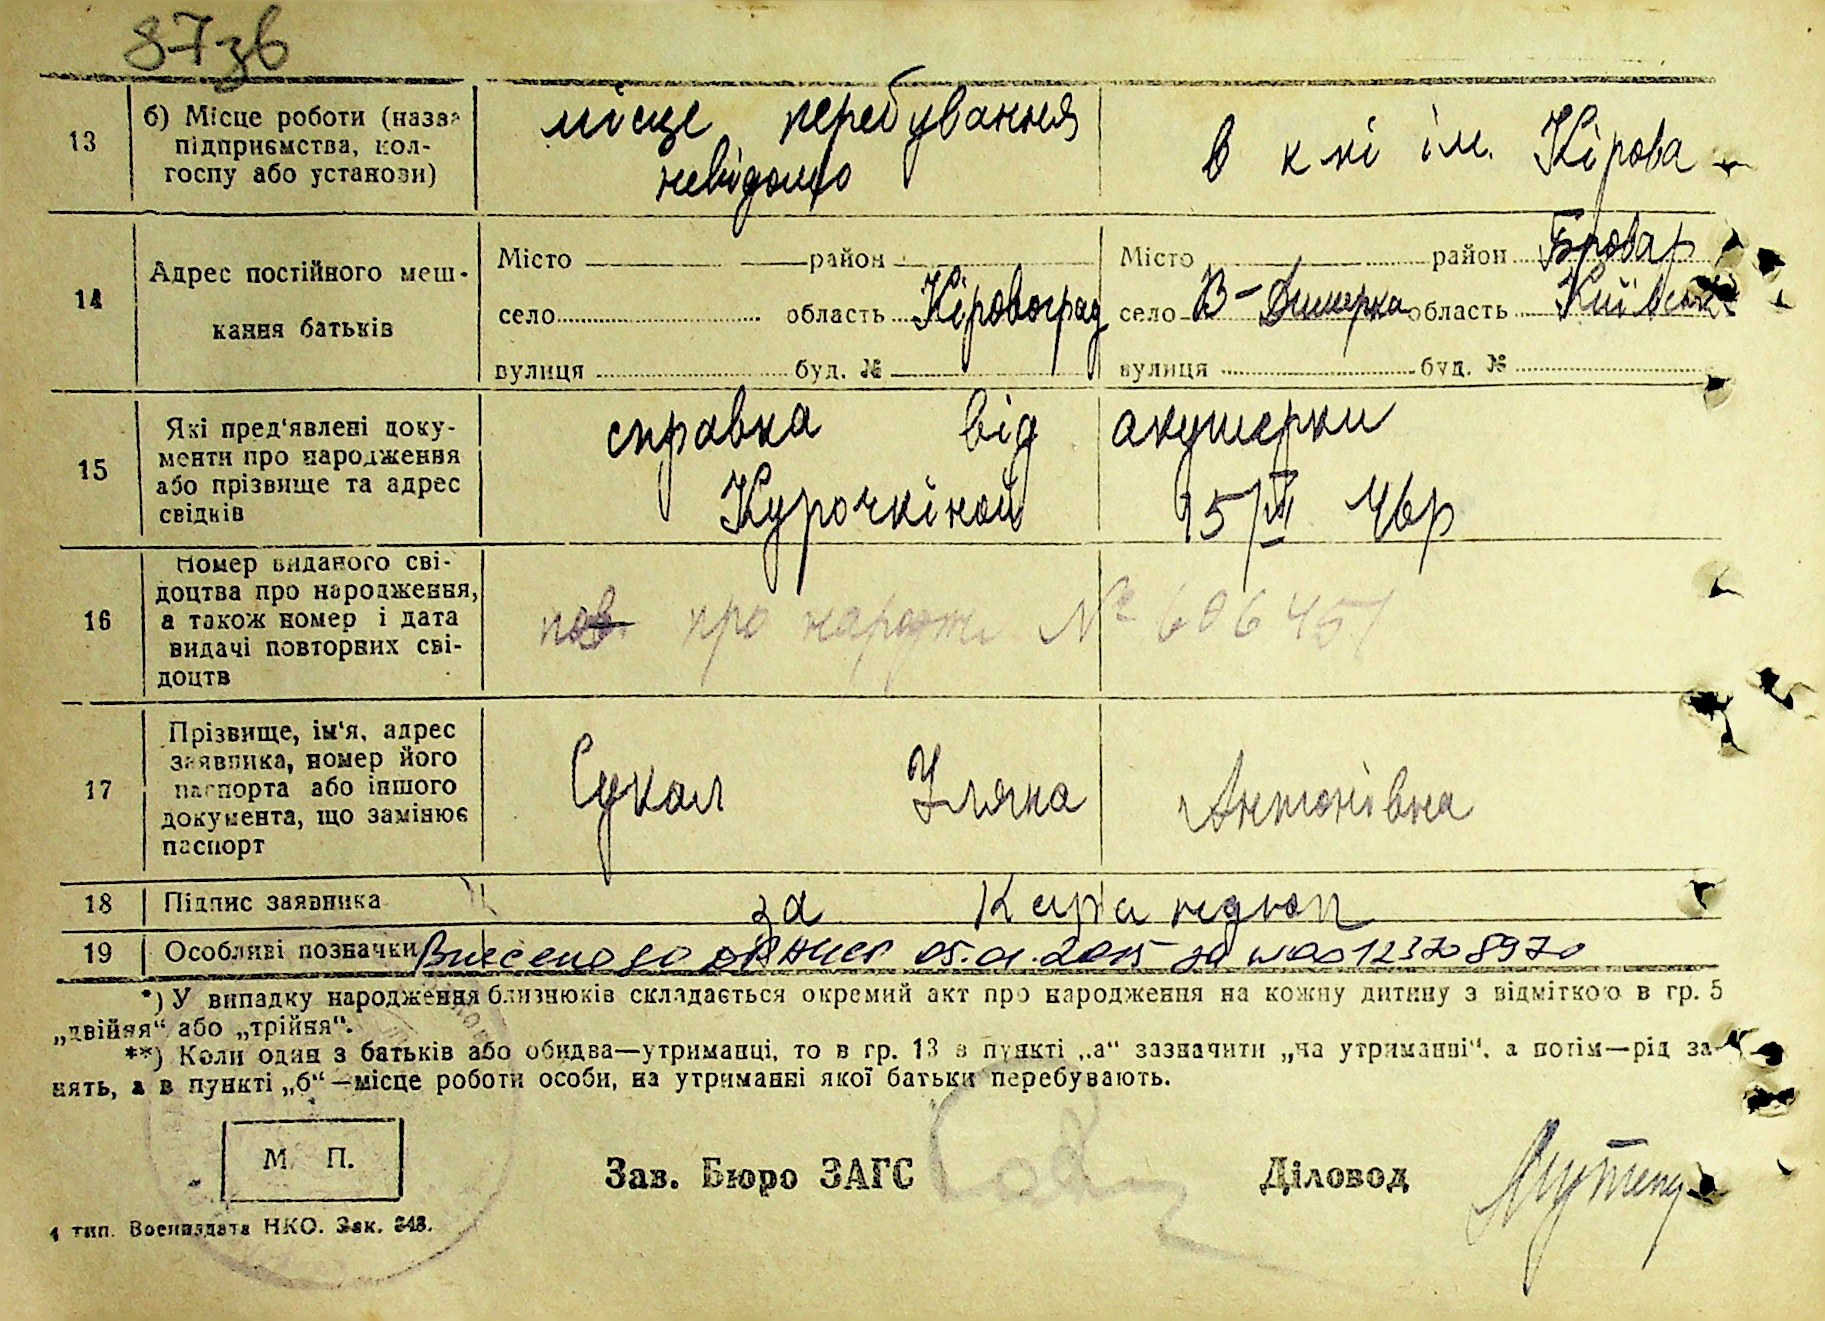 87зв
13
б) Місце роботи (назва підприємства, колгоспу або установи)
місце перебування
невідомо
в к-кі ім. Кірова
14
Адрес постійного мешкання батьків
Місто район
село область Кіровоград
вулиця буд. №
Місто район Бровар
село В-Димерка область Київськ
вулиця буд. №
15
Які пред'явлені документи про народження або прізвище та адрес свідків
справка від акушерки
Курочкіной 15/III 46р
16
Номер виданого свідоцтва про народження, а також номер і дата видачі повторних свідоцтв
пов. про народж № 606451
17
Прізвище, ім'я, адрес заявника, номер його паспорта або іншого документа, що замінює паспорт
Сукал Уляна Антонівна
18
Підпис заявника
за
19
Особливі позначки
Внесено до ДРАЦСГ 05.01.2015 за №00123708970
*) У випадку народження близнюків складається окремий акт про народження на кожну дитину з відміткою в гр. 5
„двійня“ або „трійня“.
**) Коли один з батьків або обидва—утриманці, то в гр. 13 в пункті „а“ зазначити „на утриманні“, а потім—рід за-
нять, а в пункті „б“—місце роботи особи, на утриманні якої батьки перебувають.
М. П.
Зав. Бюро ЗАГС
Діловод
1 тип. Воениздата НКО. Зак. 348.